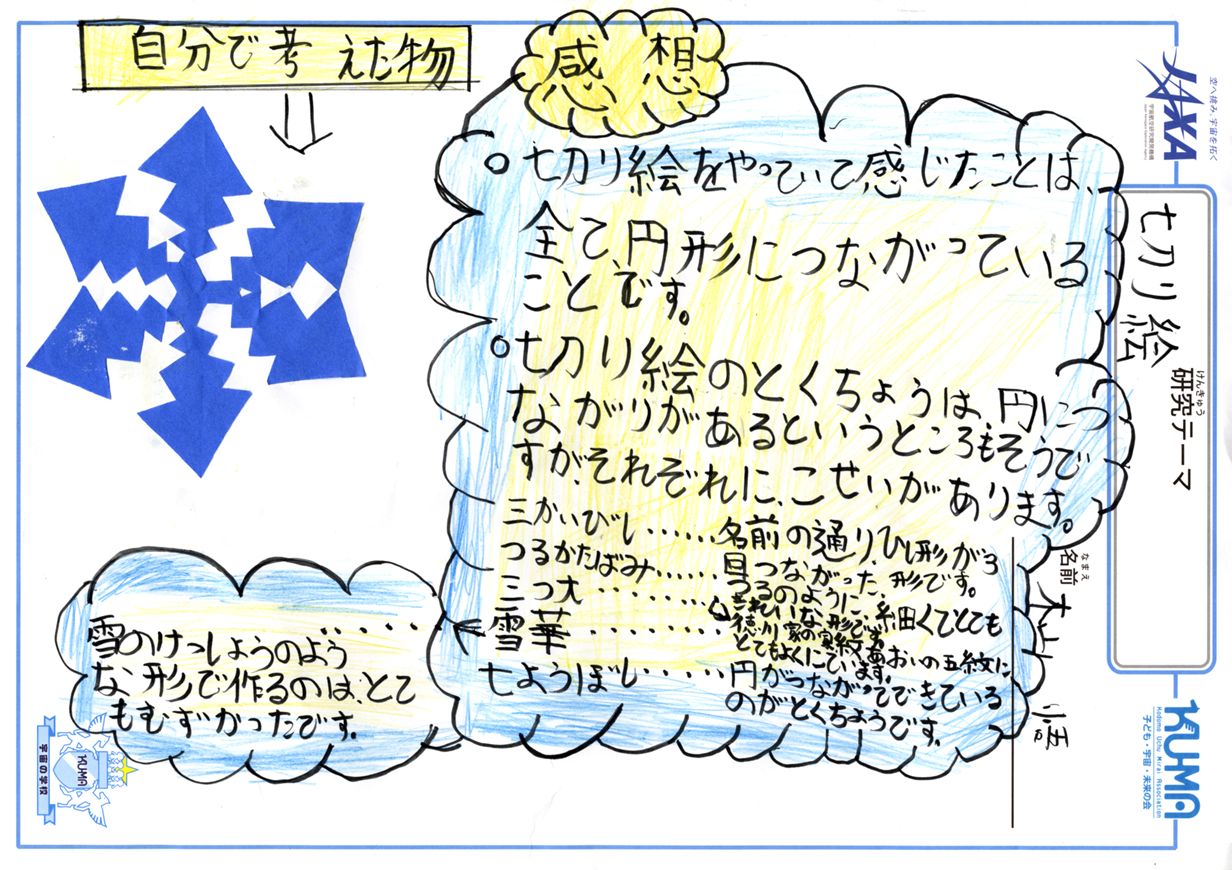 自分で考えた物
感想
○七切り絵をやっていて感じたことは、
全て円形につながっている
ことです。
○七切り絵のとくちょうは、円につ
ながりがあるというところもそうで
すが、それぞれに、こせいがあります。
三かいびし……名前の通り、ひし形が3
回つながった、形です。
つるかたばみ……つるのように、細くてとても
きれいな形です。
三つ大………徳川家の家紋あおいの五紋に
とてもよくにています。
雪華………
雪のけっしょうのよう
な、形で作るのは、とて
もむずかったです。
七ようぼし……円がつながってできている
のがとくちょうです。
空へ挑み、宇宙を拓く
JAXA
宇宙航空研究開発機構
七切り絵
けんきゅう
研究テーマ
なまえ
名前
KUMA
Kodomo Uchu Mirai Association
子ども・宇宙・未来の会
KUMA
宇宙の学校